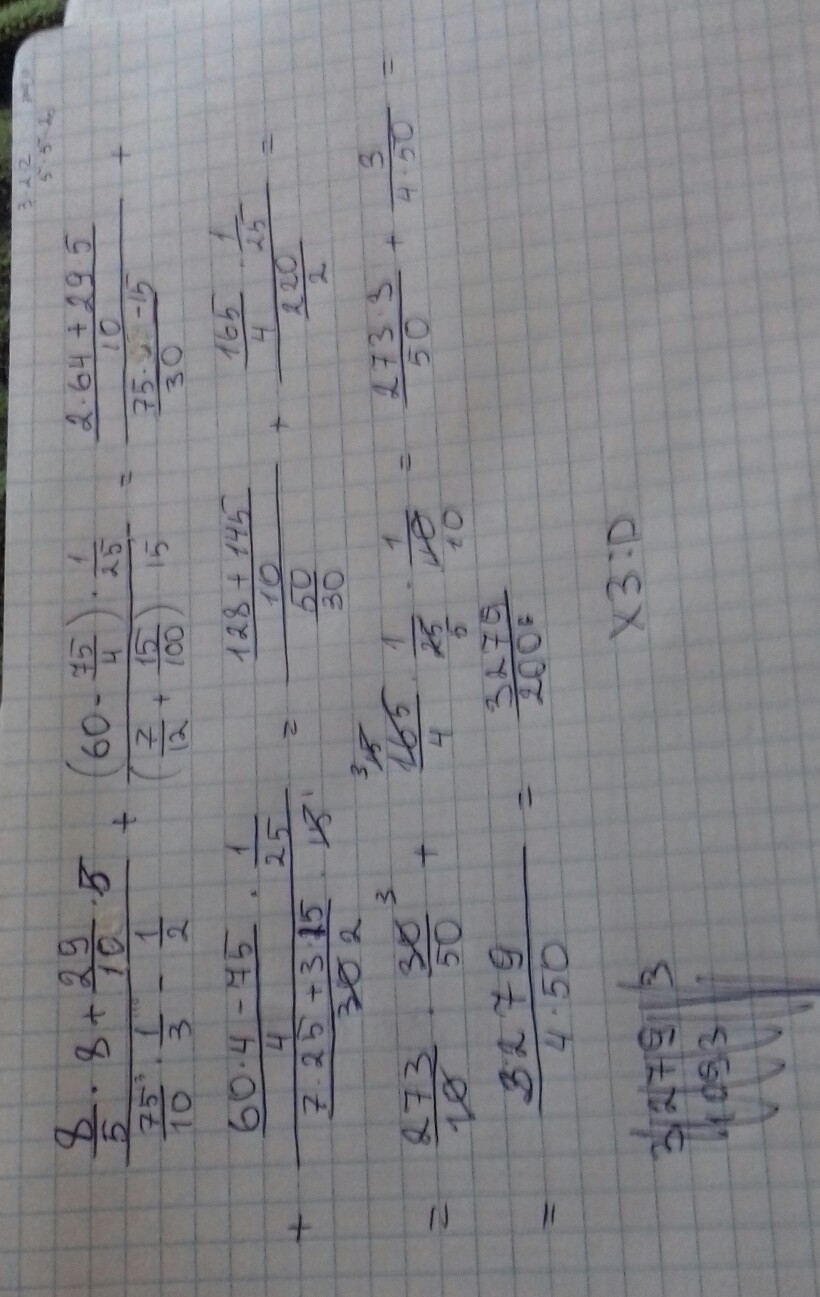 3·2·2
5·5·2
8/5 · 8 + 29/10 · 5 / 75/10 · 1/3 - 1/2 + (60 - 75/4) · 1/25 / (7/12 + 15/100) 15 = 2·64 + 29·5/10 / 75· -15/30 +
+ 60·4 - 75/4 · 1/25 / 7·25 + 3·15/30 2 · 15 = 128 + 145/10 / 50/30 + 165/4 · 1/25 / 220/2 =
= 273/10 · 30 3/50 + 3 15 165/4 · 1/25 5 · 1/10 = 273·3/50 + 3/4·50 =
= 3279/4·50 = 3275/200
3279 3
1093
X3:D